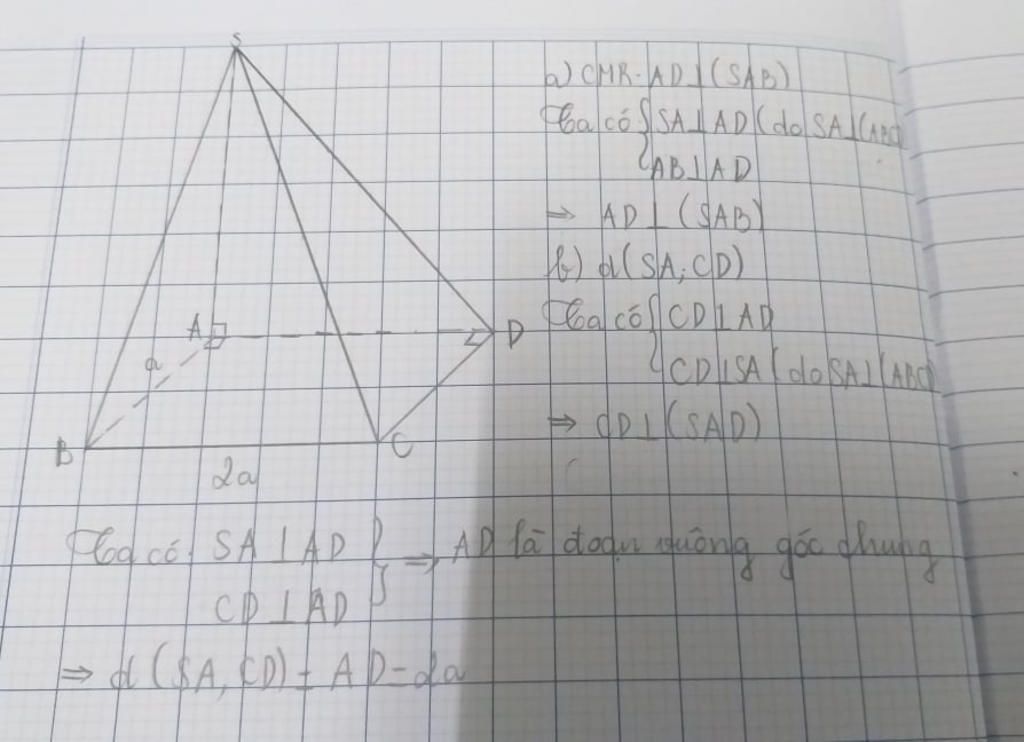 S
A
a
D
B
C
2a
a) CMR: AD⊥(SAB)
Ta có { SA⊥AD (do SA⊥(ABCD)
AB⊥AD
⇒ AD⊥(SAB)
b) d(SA; CD)
Ta có { CD⊥AD
CD⊥SA (do SA⊥(ABCD)
⇒ CD⊥(SAD)
Ta có: SA⊥AD } ⇒ AD là đoạn vuông góc chung
CD⊥AD
⇒ d(SA, CD) = AD = 2a